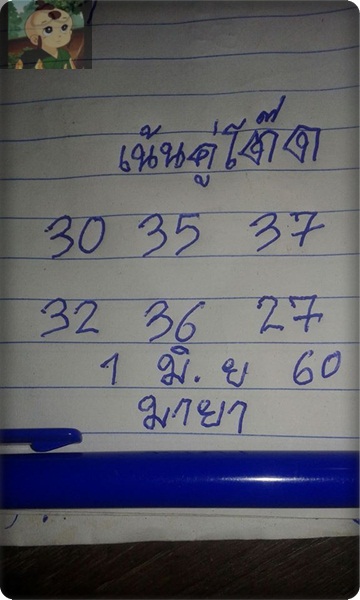 เน้นคู่โต๊ด
30 35 37
32 36 27
1 มิ.ย 60
มายา